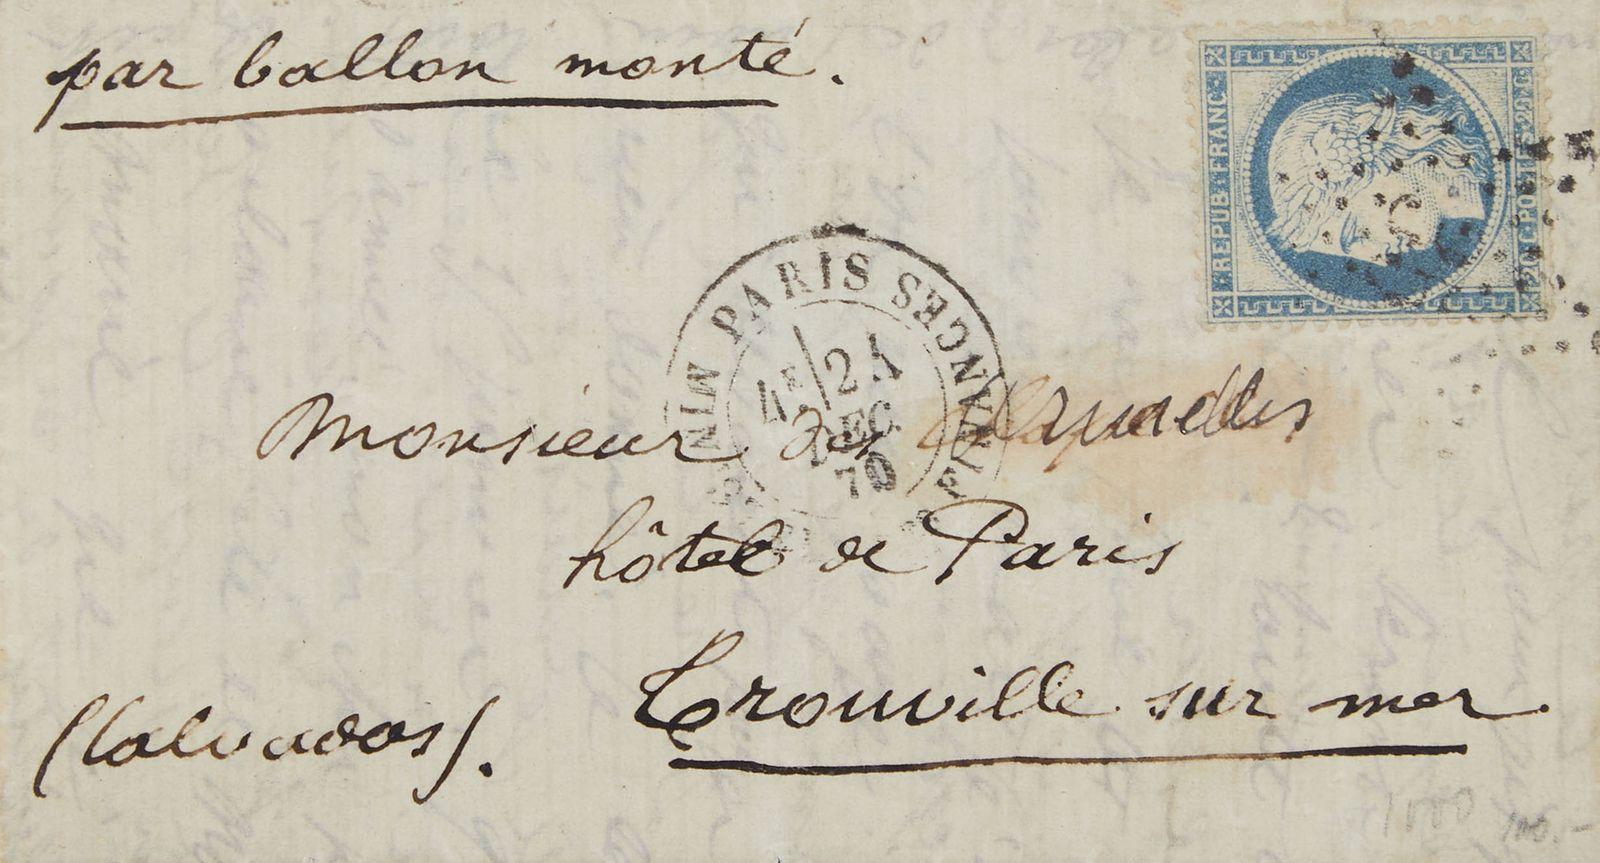 par ballon monté.
REPUB · FRANC ·
20 · C · POSTES · 20 · C
PARIS
FINANCES
4E 24
DEC.
70
Monsieur des
hôtel de Paris
Trouville sur mer.
(Calvados).
1000
100.-